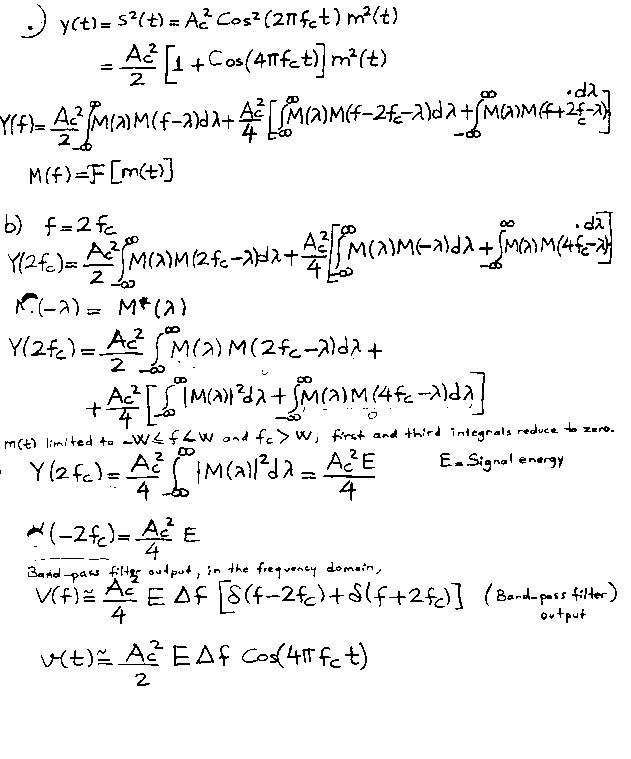 .) y(t) = s²(t) = Ac² Cos²(2πfct) m²(t)
= Ac²/2 [1 + Cos(4πfct)] m²(t)
Y(f) = Ac²/2 ∫_{-∞}^{∞} M(λ)M(f-λ)dλ + Ac²/4 [∫_{-∞}^{∞} M(λ)M(f-2fc-λ)dλ + ∫_{-∞}^{∞} M(λ)M(f+2fc-λ)·dλ]
M(f) = F[m(t)]
b) f = 2fc
Y(2fc) = Ac²/2 ∫_{-∞}^{∞} M(λ)M(2fc-λ)dλ + Ac²/4 [∫_{-∞}^{∞} M(λ)M(-λ)dλ + ∫_{-∞}^{∞} M(λ)M(4fc-λ)·dλ]
M(-λ) = M*(λ)
Y(2fc) = Ac²/2 ∫_{-∞}^{∞} M(λ)M(2fc-λ)dλ +
+ Ac²/4 [∫_{-∞}^{∞} |M(λ)|²dλ + ∫_{-∞}^{∞} M(λ)M(4fc-λ)dλ]
m(t) limited to -W≤f≤W and fc>W, first and third integrals reduce to zero.
Y(2fc) = Ac²/4 ∫_{-∞}^{∞} |M(λ)|²dλ = Ac²E/4 E=Signal energy
(-2fc) = Ac²/4 E
Band-pass filter output, in the frequency domain,
V(f) ≅ Ac²/4 E Δf [δ(f-2fc)+δ(f+2fc)] (Band-pass filter)
output
v(t) ≅ Ac²/2 E Δf Cos(4πfct)